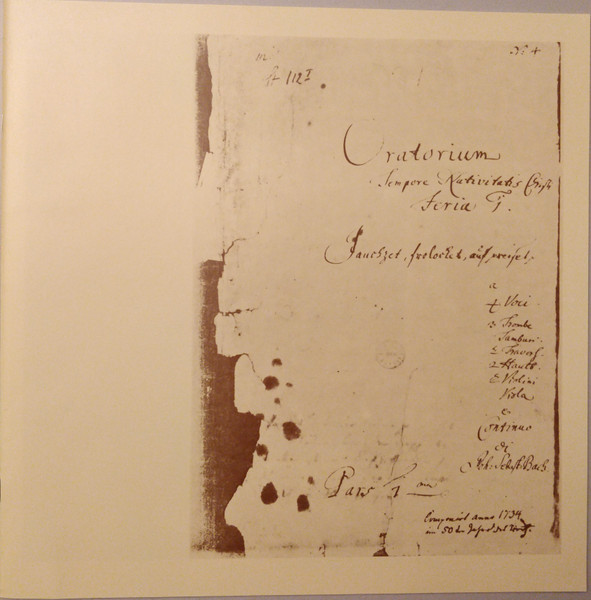 No 4
112
Oratorium
Tempore Nativitatis Christi
Feria 1.
Jauchzet, frolocket, auf, preiset.
a
4 Voci
3 Trombe
Tamburi.
2 Travers.
2 Hautb.
2 Violini
Viola
e
Continuo
di
Joh. Sebast. Bach.
Pars 1 ma
Componirt anno 1734
im 50